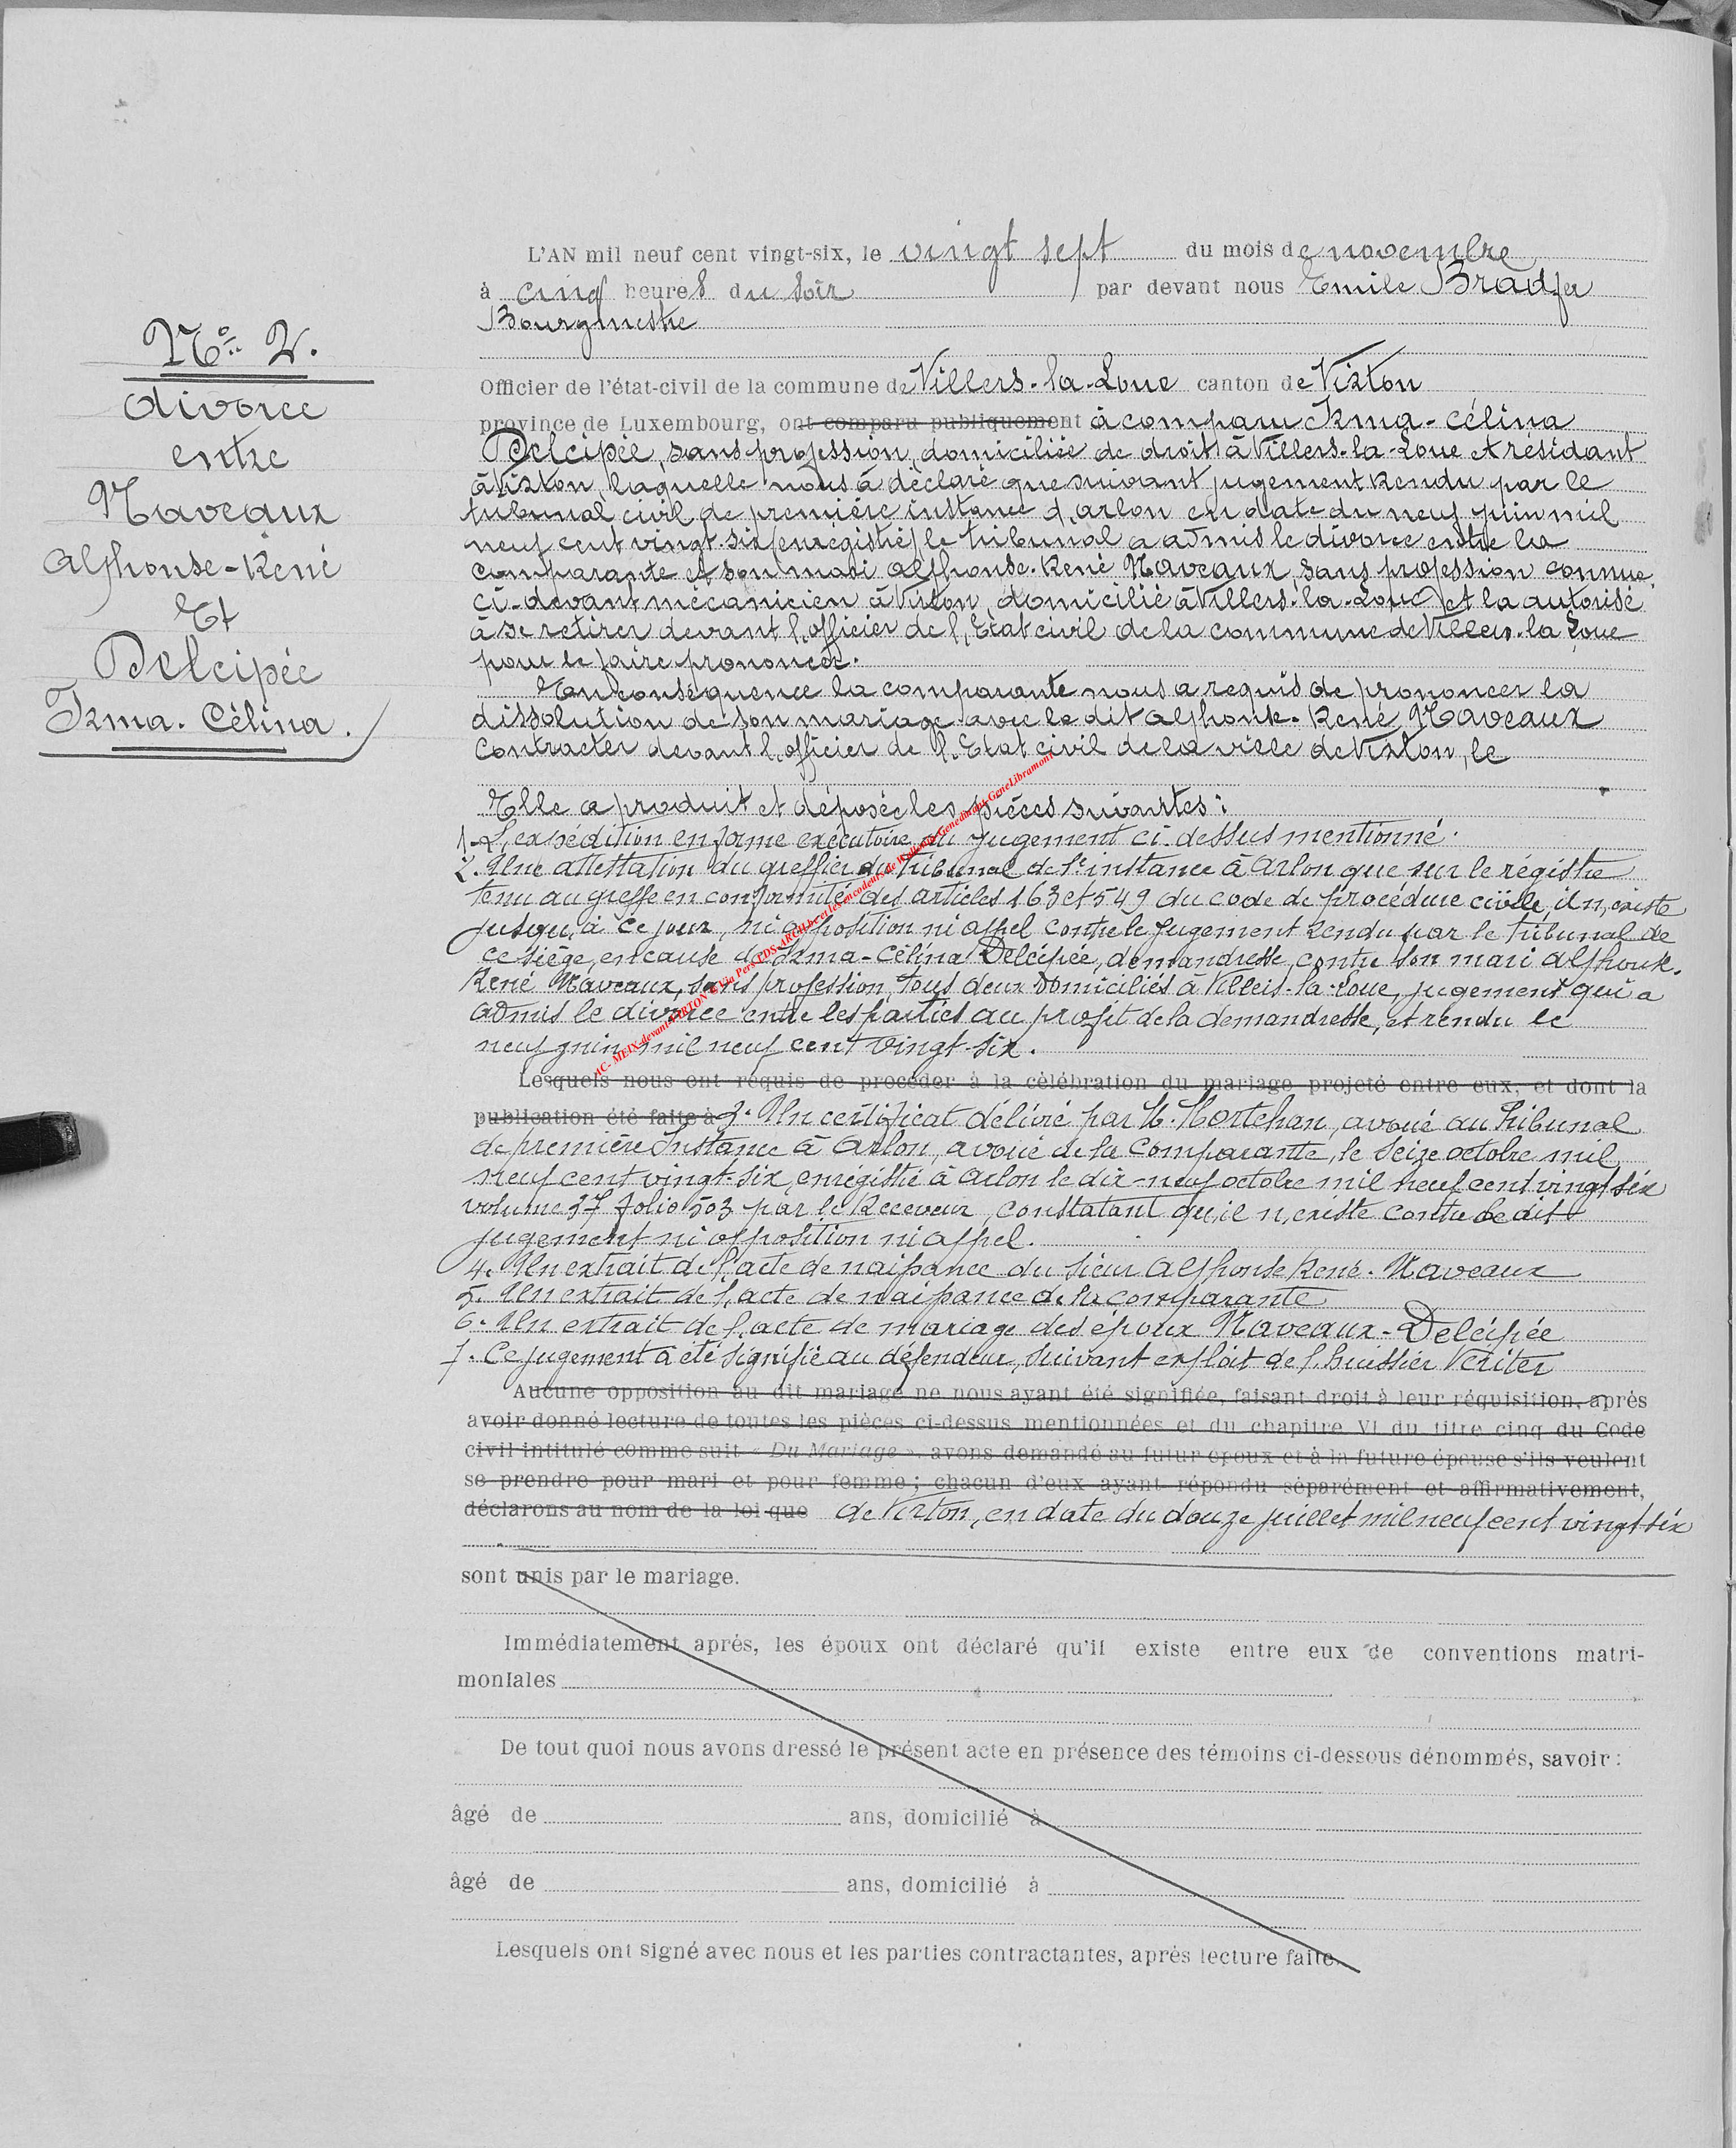 N° 2.
divorce
entre
Naveaux
Alphonse-René
Et
Delcipée
Irma. Célina.
L'AN mil neuf cent vingt-six, le vingt sept du mois de novembre
à cinq heures du soir par devant nous Emile Bradfer
Bourgmestre
Officier de l'état-civil de la commune de Villers-la-Loue canton de Virton
province de Luxembourg, ont comparu publiquement à comparu Irma-Célina
Delcipée, sans profession, domiciliée de droit à Villers-la-Loue et résidant
à Virton, laquelle nous à déclaré que suivant jugement rendu par le
tribunal civil de première instance d'arlon en date du neuf juin mil
neuf cent vingt-six (enrégistré) le tribunal a admis le divorce entre la
comparante et son mari Alphonse-René Naveaux, sans profession connue,
ci-devant mécanicien à Virton, domicilié à Villers-la-Loue et la autorisé
à se retirer devant l'officier de l'Etat civil de la commune de Villers-la Loue
pour le faire prononcer.
En conséquence la comparante nous a requis de prononcer la
dissolution de son mariage avec le dit Alphonse-René Naveaux
contracter devant l'officier de l'Etat civil de la ville de Virton, le
Elle a produit et déposée les pièces suivantes:
1-L'expédition en forme exécutoire du jugement ci-dessus mentionné.
2. Une attestation du greffier du Tribunal de 1e instance à Arlon que sur le régistre
tenu au greffe en conformité des articles 163 et 549 du code de procédure civile, il n'existe
jusqu'à ce jour, ni opposition ni appel contre le jugement rendu par le tribunal de
ce siège, en cause de Irma-Célina Delcipée, demandresse, contre son mari Alphonse-
René Naveaux, sans profession, tous deux domiciliés à Villers-la-Loue, jugement qui a
admis le divorce entre les parties au profit de la demandresse, et rendu le
neuf juin mil neuf cent vingt-six.
Lesquels nous ont requis de procéder à la célébration du mariage projeté entre eux, et dont la
publication été faite à 3. Un certificat délivré par M. Hortehan, avoué au Tribunal
de première Instance à Arlon, avoué de la comparante, le seize octobre mil
neuf cent vingt-six, enrégistré à Arlon le dix-neuf octobre mil neuf cent vingt six
volume 37 folio 503 par le Receveur, constatant qu'il n'existe contre le dit
jugement ni opposition ni appel.
4. Un extrait de l'acte de naissance du sieur Alphonse René-Naveaux
5. Un extrait de l'acte de naissance de la comparante
6. Un extrait de l'acte de mariage des époux Naveaux-Delcipée
7. Ce jugement a été signifié au défendeur, suivant exploit de l'huissier Veriter
Aucune opposition au dit mariage ne nous ayant été signifiée, faisant droit à leur réquisition, après
avoir donné lecture de toutes les pièces ci-dessus mentionnées et du chapitre VI du titre cinq du Code
civil intitulé comme suit « Du Mariage », avons demandé au futur époux et à la future épouse s'ils veulent
se prendre pour mari et pour femme ; chacun d'eux ayant répondu séparément et affirmativement,
déclarons au nom de la loi que de Virton, en date du douze juillet mil neuf cent vingt six
sont unis par le mariage.
Immédiatement après, les époux ont déclaré qu'il existe entre eux de conventions matri-
moniales
De tout quoi nous avons dressé le présent acte en présence des témoins ci-dessous dénommés, savoir :
âgé de ans, domicilié à
âgé de ans, domicilié à
Lesquels ont signé avec nous et les parties contractantes, après lecture faite.